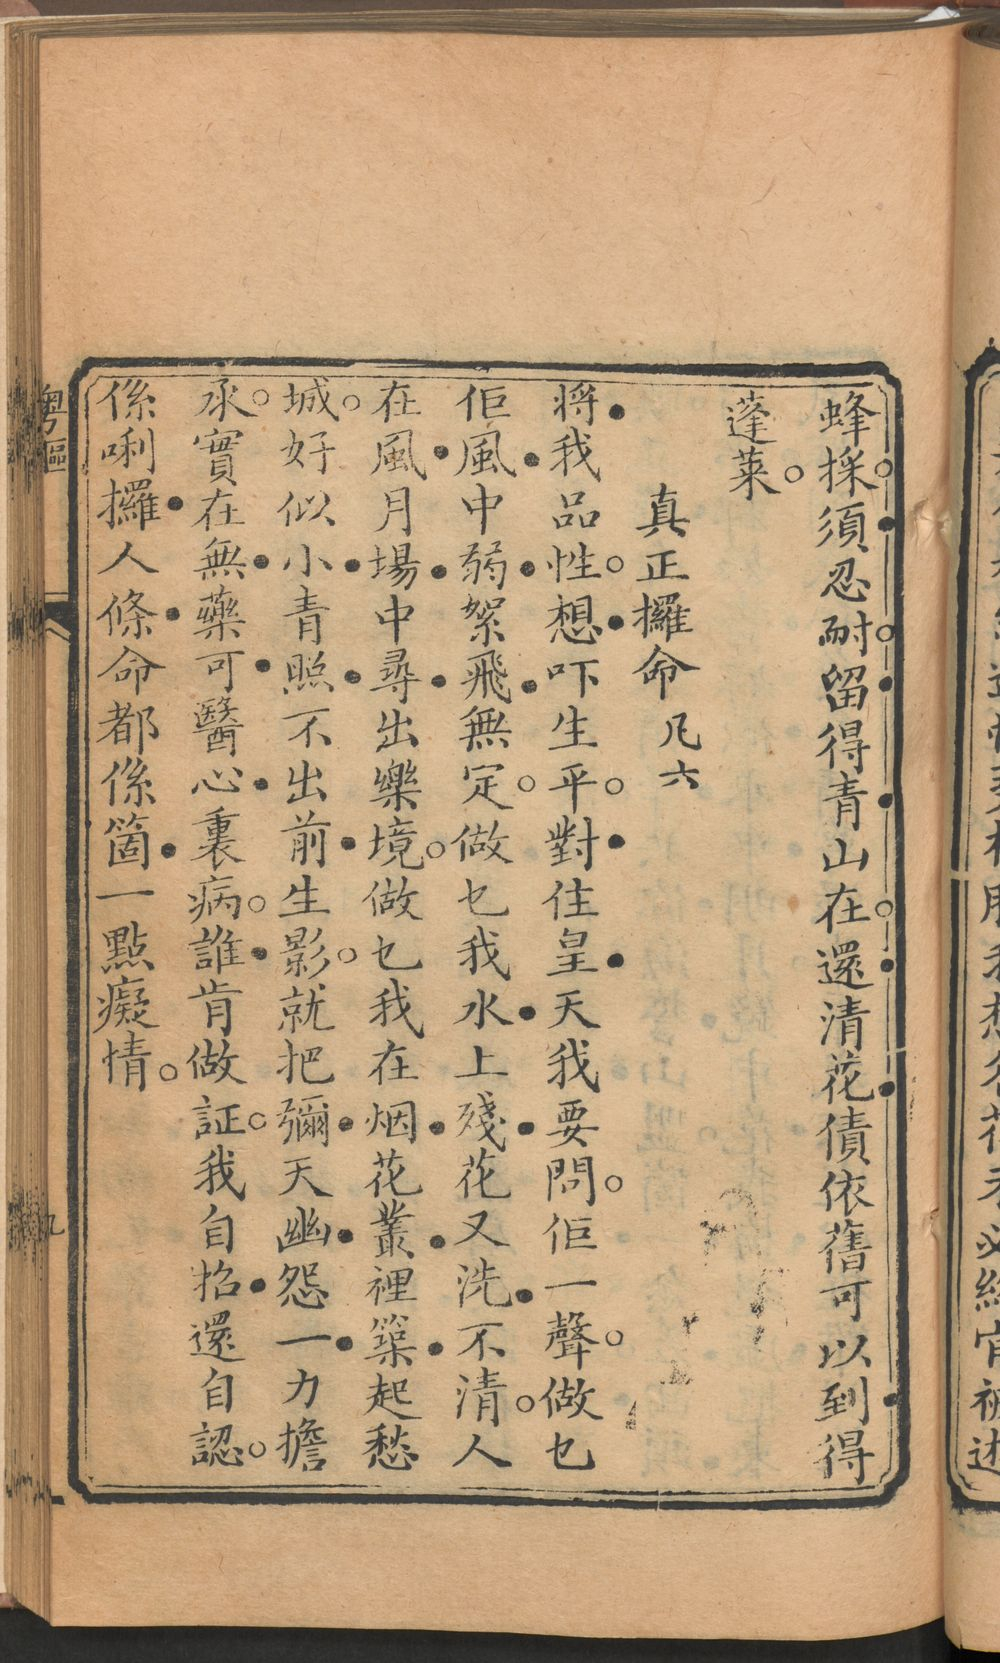 蜂採○須忍耐○留得青山在○還清花債依舊可以到得
蓬萊○
真正攞命 凡六
將我品性○想吓生平○對住皇天我要問○佢一聲○做乜
佢風中弱絮飛無定○做乜我水上殘花又洗不清○人
在風月場中尋出樂境○做乜我在烟花叢裡築起愁
城○好似小青照不出前生影○就把彌天幽怨一力擔
承○實在無藥可醫心裏病○誰肯做証○我自招還自認○
係唎攞人條命都係箇一點癡情○
粵謳
九